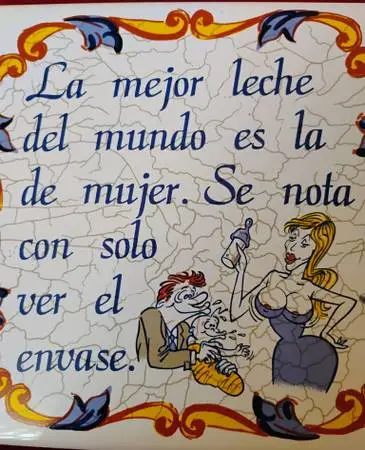 La mejor leche
del mundo es la
de mujer. Se nota
con solo
ver el
envase.